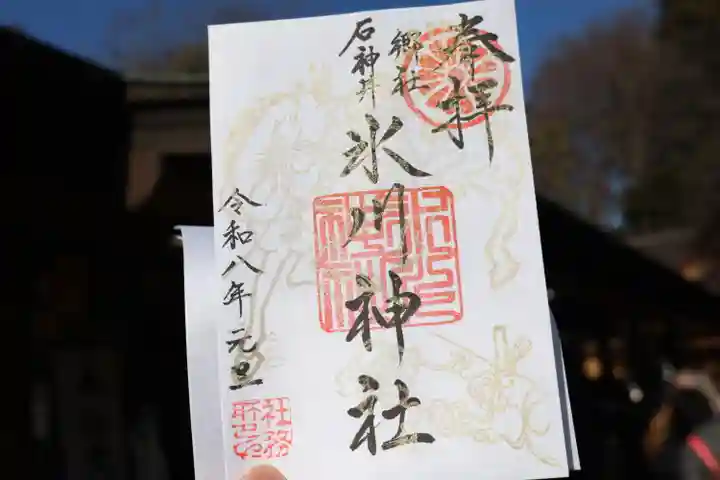 奉拝
郷社
石神井
氷川神社
令和八年元旦
社務所之印